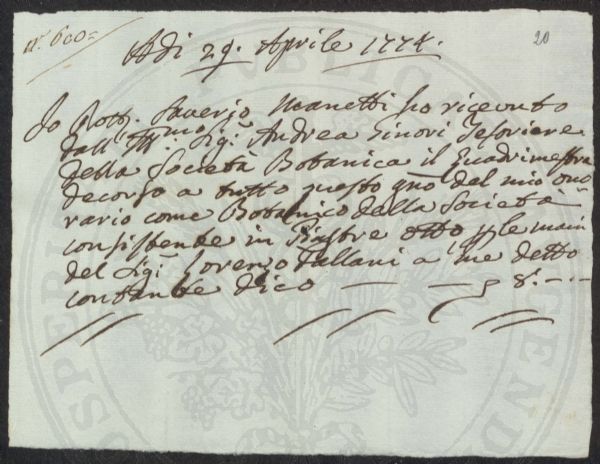 n.° 600=
20
Adi 29. Aprile 1774.
Io Dott. Saverio Manetti ho ricevuto
dall' Ill.mo Sig.r Andrea Ginori Tesoriere
della Società Botanica il Quadrimestre
decorso a tutto questo gno del mio ono
rario come Botanico della Società
consistente in Piastre otto p le mani
del Sig.r Lorenzo Tallani a me detto
contante dico — — 8.--